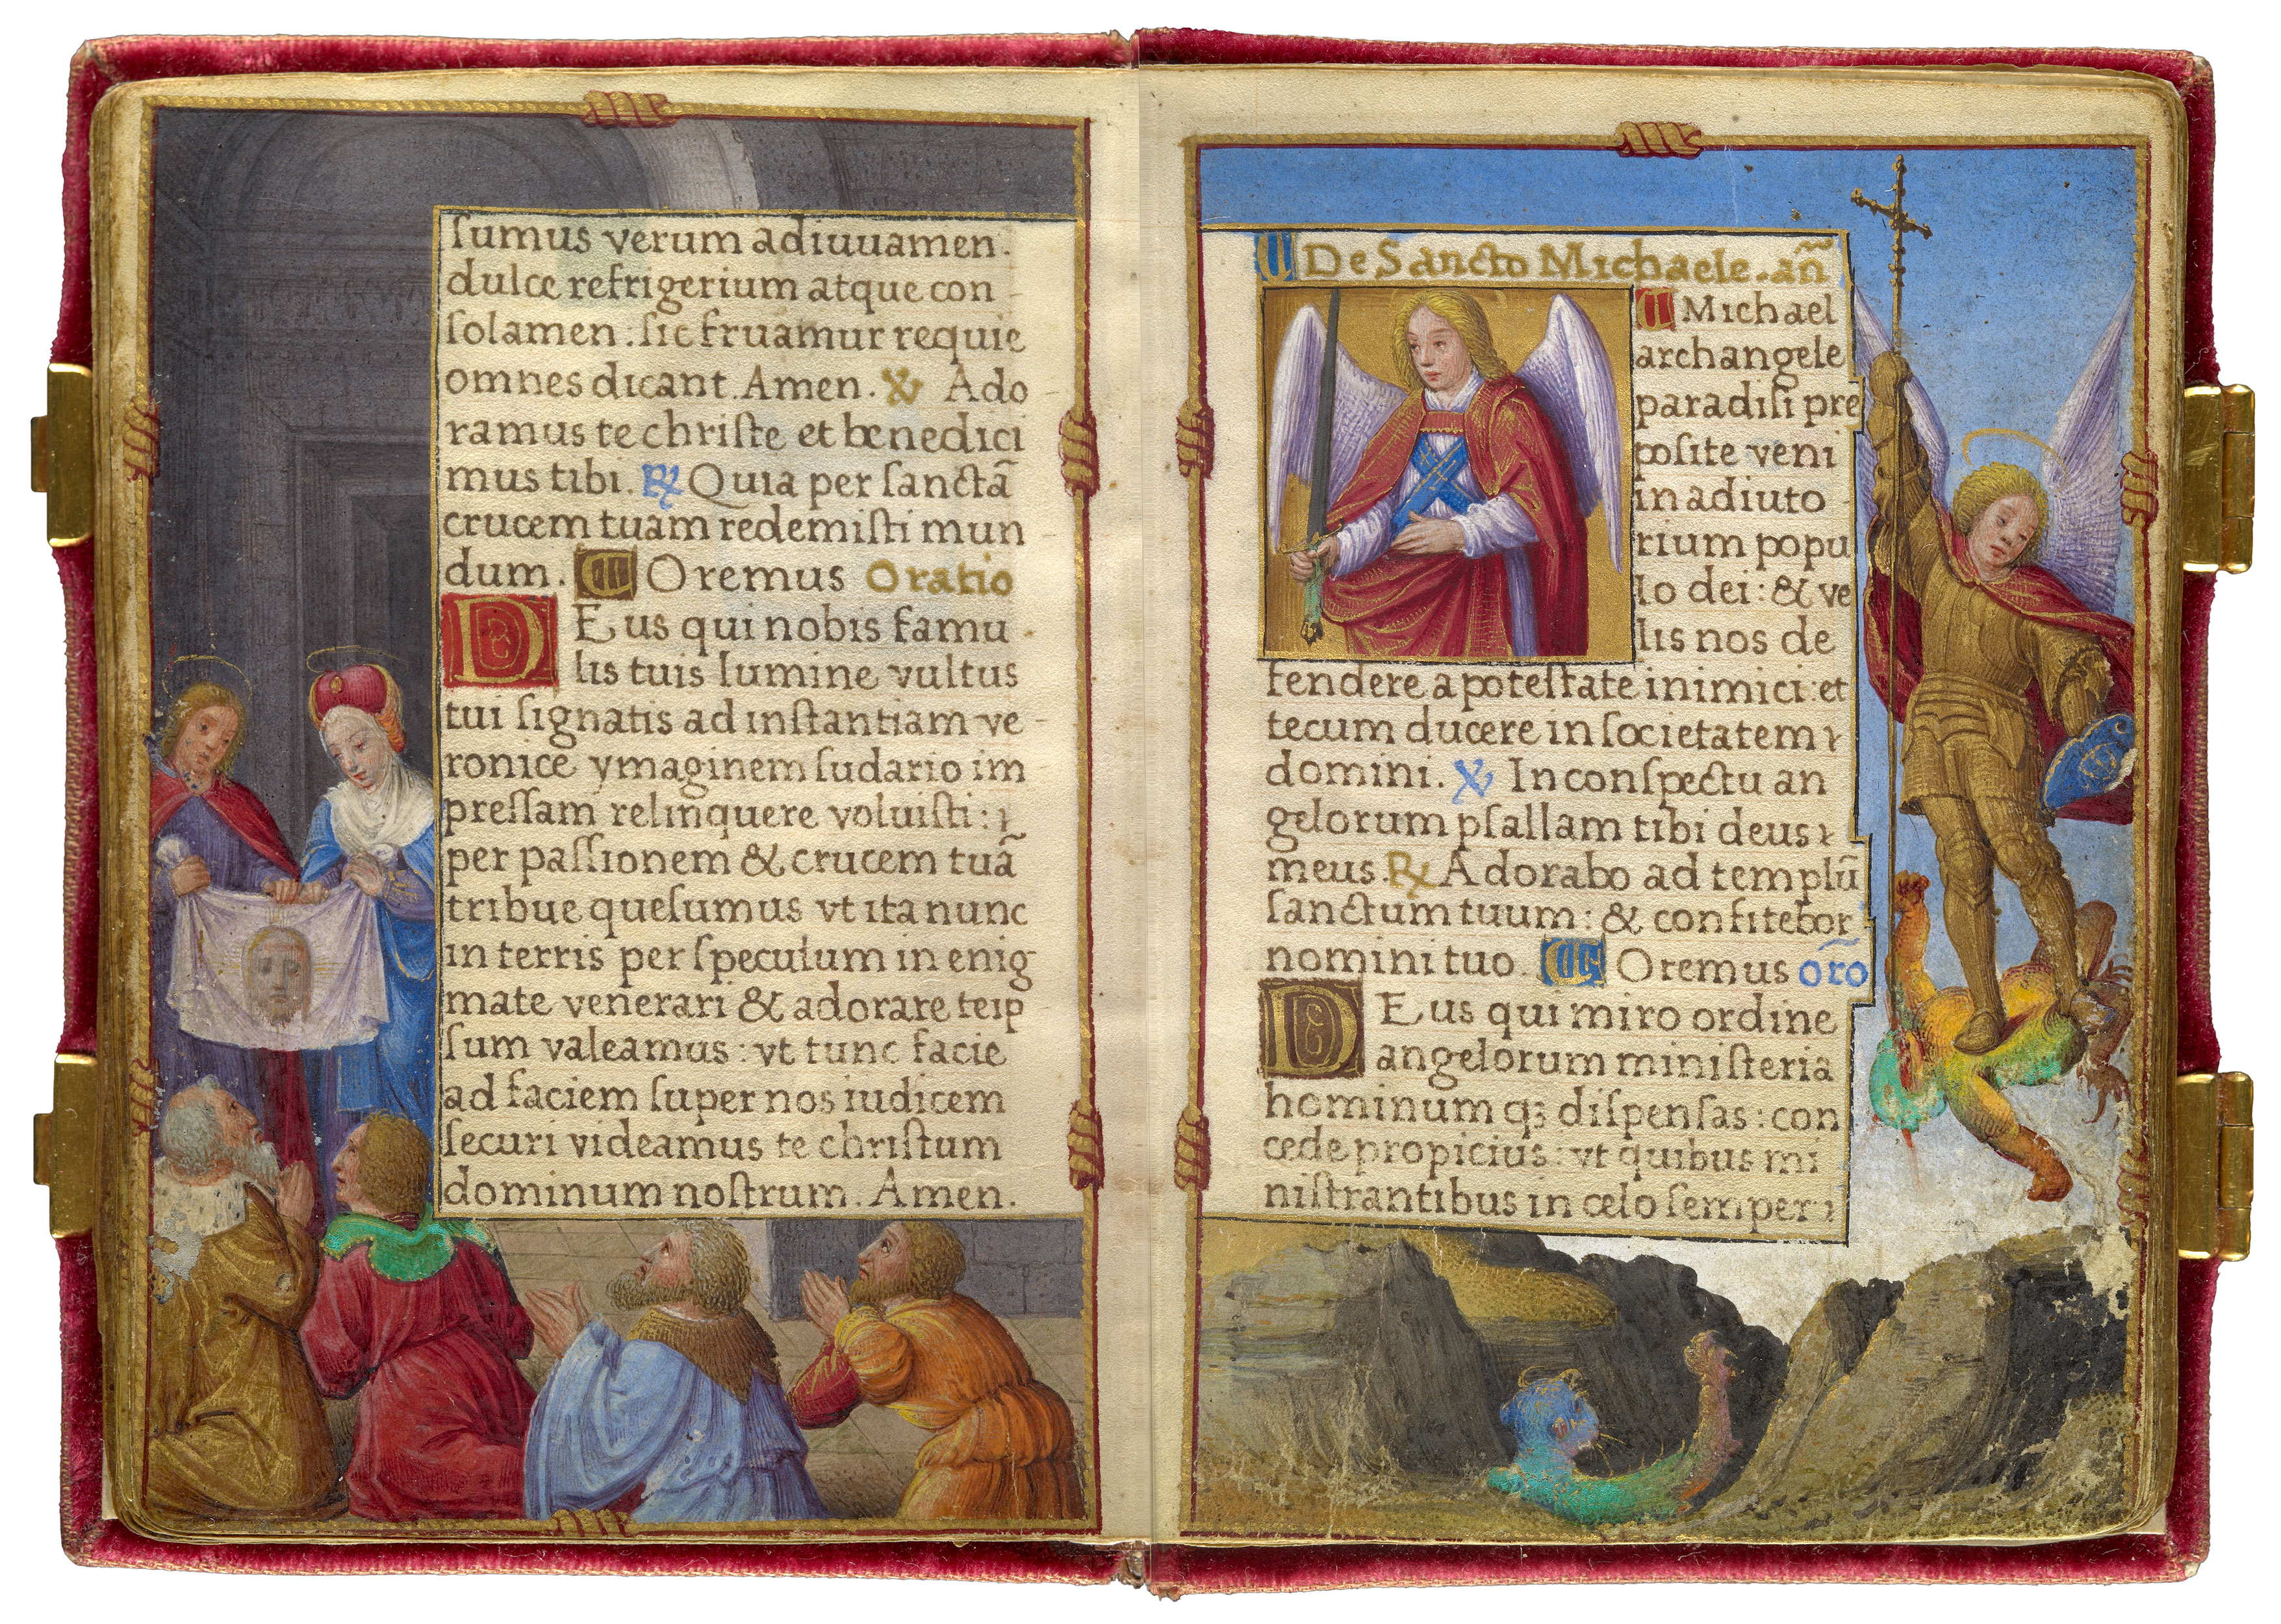 ſumus verum adiuuamen.
dulce refrigerium atque con-
ſolamen: ſic fruamur requie
omnes dicant. Amen. ℣ Ado
ramus te chriſte et benedici
mus tibi. ℟ Quia per ſanctā
crucem tuam redemiſti mun-
dum. Oremus Oratio
DEus qui nobis famu-
lis tuis lumine vultus
tui ſignatis ad inſtantiam ve-
ronice ymaginem ſudario im-
preſſam relinquere voluiſti: ⁊
per paſſionem & crucem tuā
tribue queſumus vt ita nunc
in terris per ſpeculum in enig-
mate venerari & adorare teip-
ſum valeamus: vt tunc facie
ad faciem ſuper nos iudicem
ſecuri videamus te chriſtum
dominum noſtrum. Amen.
De Sancto Michaele. an̄
Michael
archangele
paradiſi pre
poſite veni
in adiuto-
rium popu
lo dei: & ve
lis nos de
fendere a poteſtate inimici: et
tecum ducere in ſocietatem
domini. ℣ In conſpectu an
gelorum pſallam tibi deus
meus. ℟ Adorabo ad templū
ſanctum tuum: & confitebor
nomini tuo. Oremus orō
DEus qui miro ordine
angelorum miniſteria
hominumqꝫ diſpenſas: con
cede propicius: vt quibus mi
niſtrantibus in celo ſemper